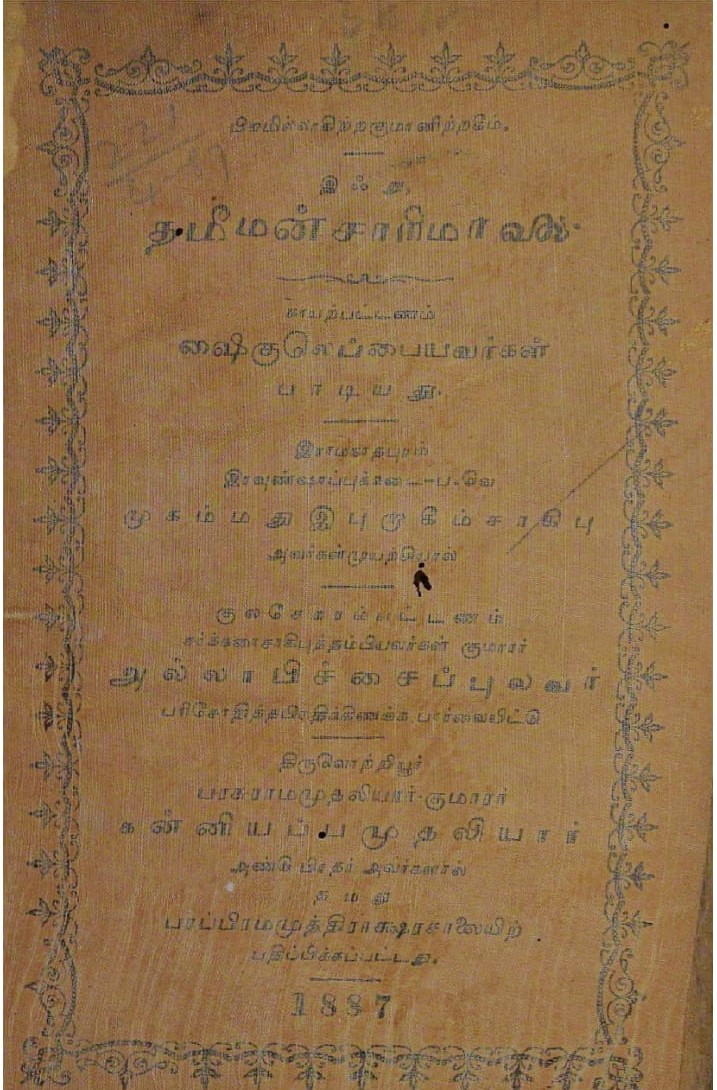 பிசமில்லாகிற்றகுமானிற்றகீம்.
இஃது,
தமீமன்சாரிமாலை.
காயற்பட்டணம்
ஷைகுலெப்பையவர்கள்
பாடியது.
இராமனாதபுரம்
இரவுண்ஷாப்புக்கடை-ப-வெ
முகம்மதுஇபுறுகிம்சாகிபு
அவர்கள்முயற்சியால்
குலசேகரம்பட்டணம்
சர்க்கரைசாகிபுத்தம்பியவர்கள் குமாரர்
அல்லாபிச்சைப்புலவர்
பரிசோதித்தபிரதிக்கிணங்க, பார்வையிட்டு
திருவொற்றியூர்
பரசுராமமுதலியார்-குமாரர்
கன்னியப்பமுதலியார்
அண்டு பிரதர் அவர்களால்
தமது
பரப்பிரமமுத்திராக்ஷரசாலையிற்
பதிப்பிக்கப்பட்டது.
1887